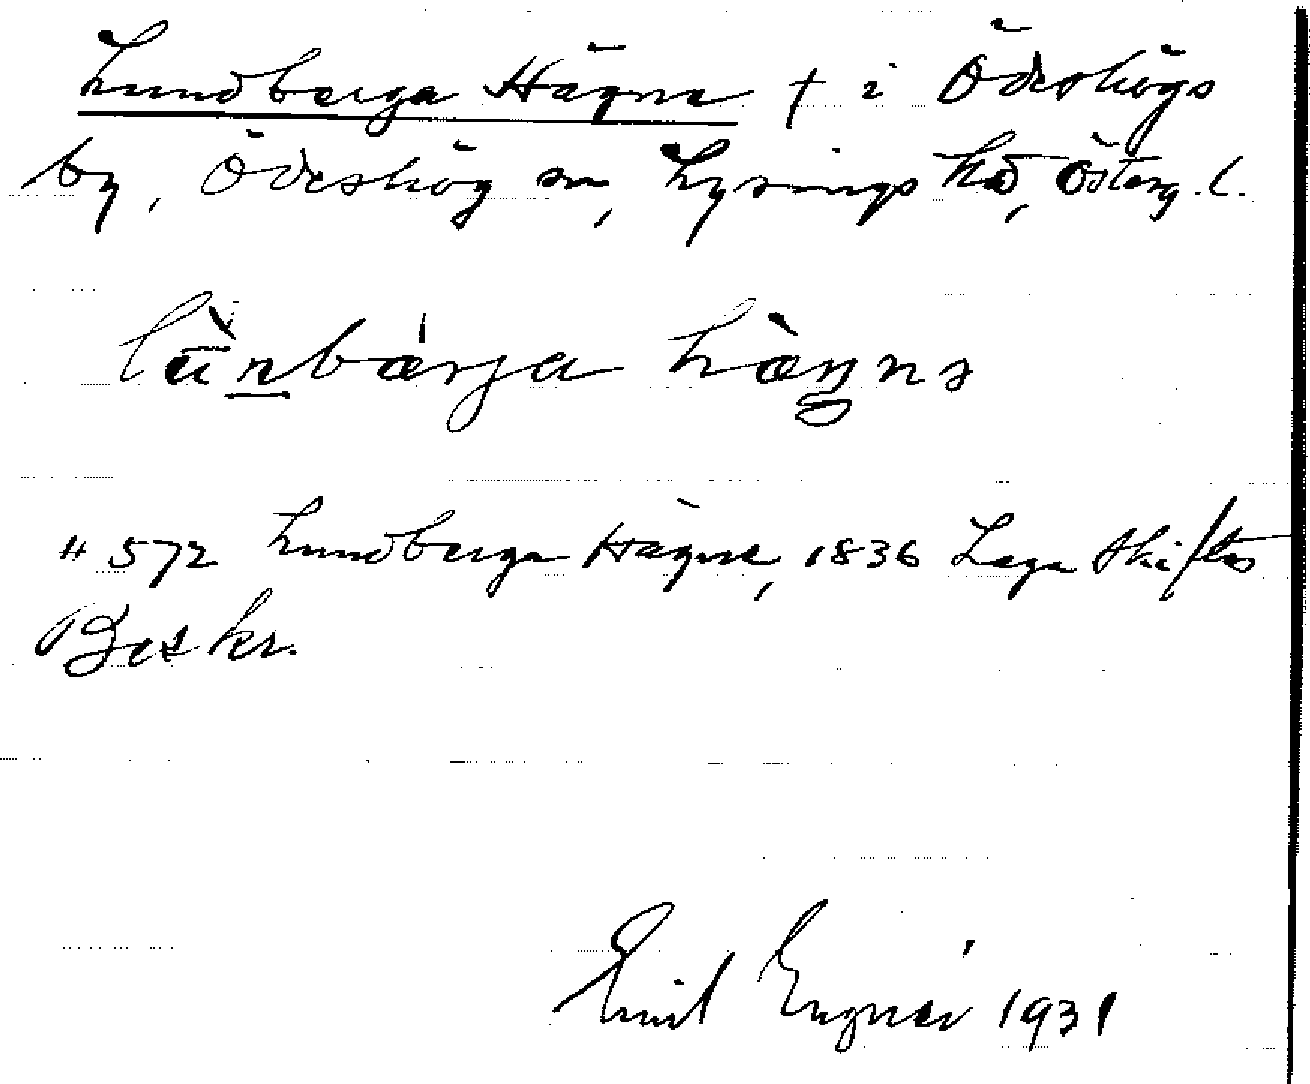 Lundberga Hägne † i Ödeshögs
by, Ödeshög sn, Lysings hd, Österg. l.
lùnbárja hàŋnə
" 572 Lundberga Hägne, 1836 Laga Skiftes
Beskr.
Emil Engnér 1931